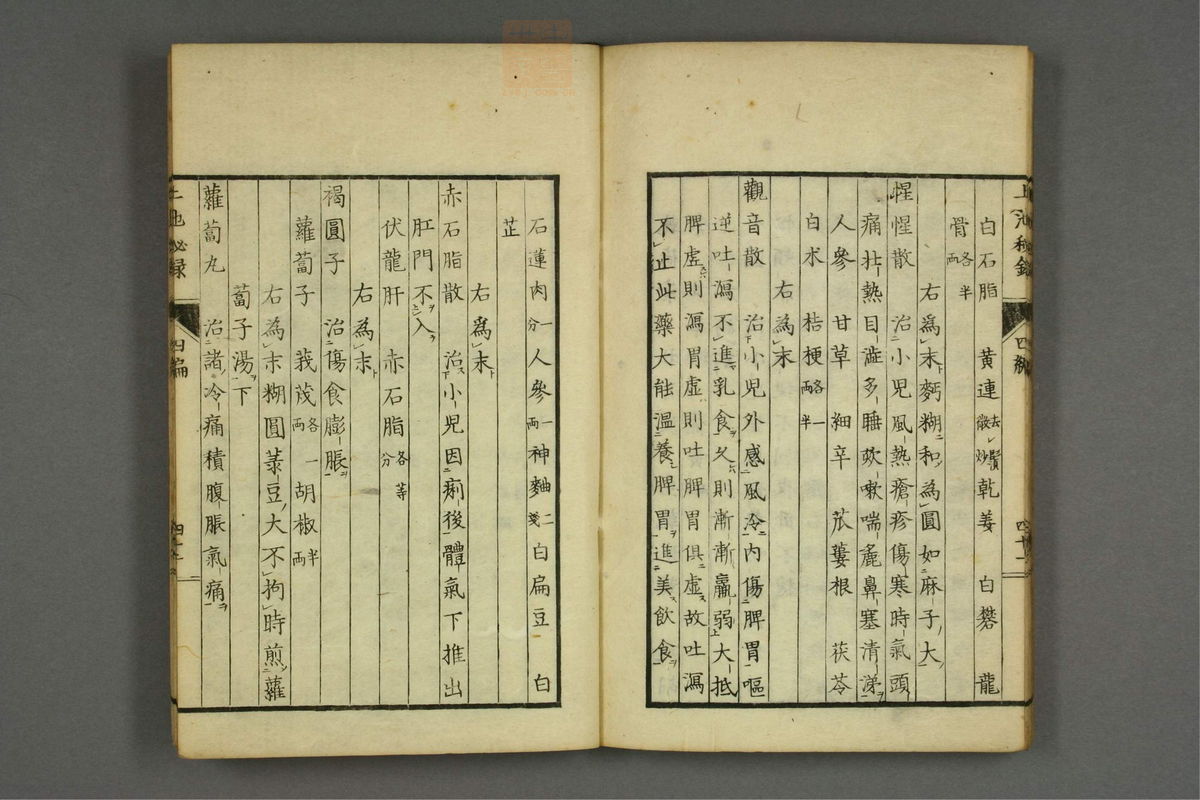 白石脂 黄連去鬚微炒 乾姜 白礬 龍
骨各半両
右為末麪糊和為圓如麻子大
惺惺散 治小児風熱瘡疹傷寒時氣頭
痛壮熱目澁多睡欬嗽喘麁鼻塞清涕
人參 甘草 細辛 苽蔞根 茯苓
白朮 桔梗各一両半
右為末
觀音散 治小児外感風冷内傷脾胃嘔
逆吐瀉不進乳食久則漸漸羸弱大抵
脾虚則瀉胃虚則吐脾胃俱虚故吐瀉
不止此藥大能温養脾胃進美飲食
上池秘録 四編
石蓮肉一分 人參一両 神麯二戔 白扁豆 白
芷
右為末
赤石脂散 治小児因痢後體氣下推出
肛門不入
伏龍肝 赤石脂各等分
右為末
褐圓子 治傷食膨脹
蘿蔔子 莪茂各一両 胡椒半両
右為末糊圓菉豆大不拘時煎蘿
蔔子湯下
蘿蔔丸 治諸冷痛積腹脹氣痛
上池秘録 四編